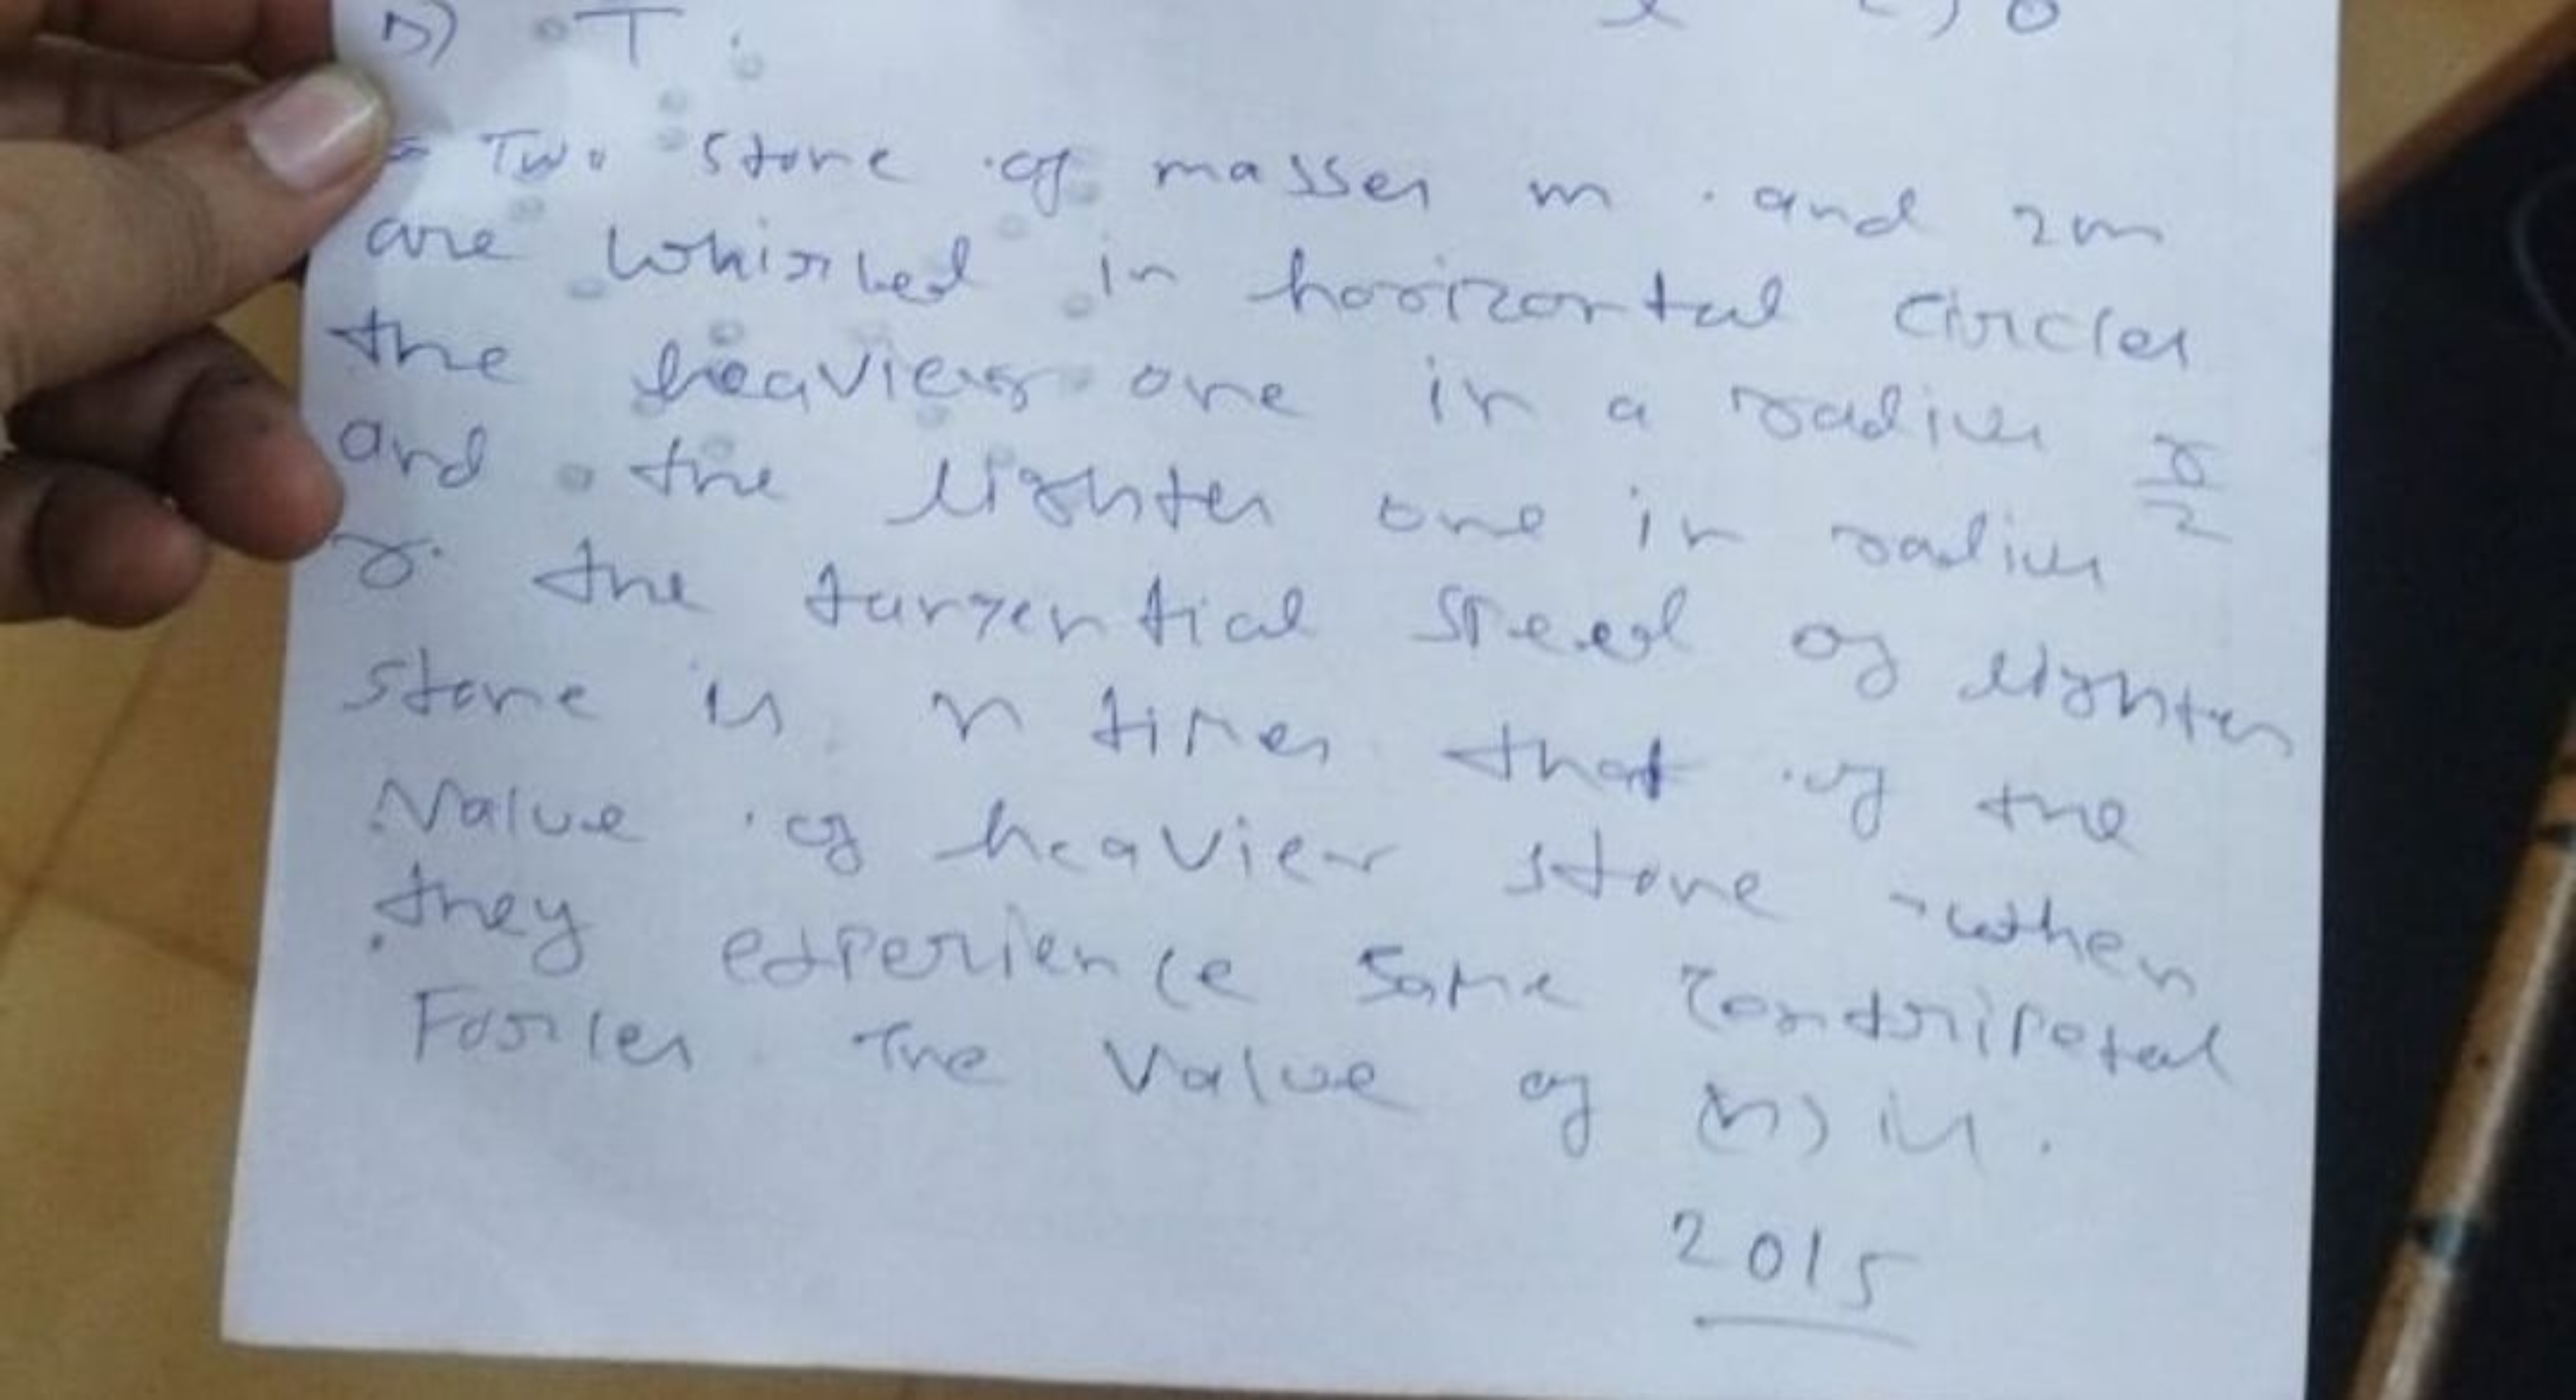 D) T
Two stone of masses m and 2m
are whirled in horizontal circles
the heavier one in a radius r/2
and the lighter one in radius
r. the tangential speed of lighter
stone is n times that of the
value of heavier stone when
they experience same centripetal
Forces The value of (n) is.
2015